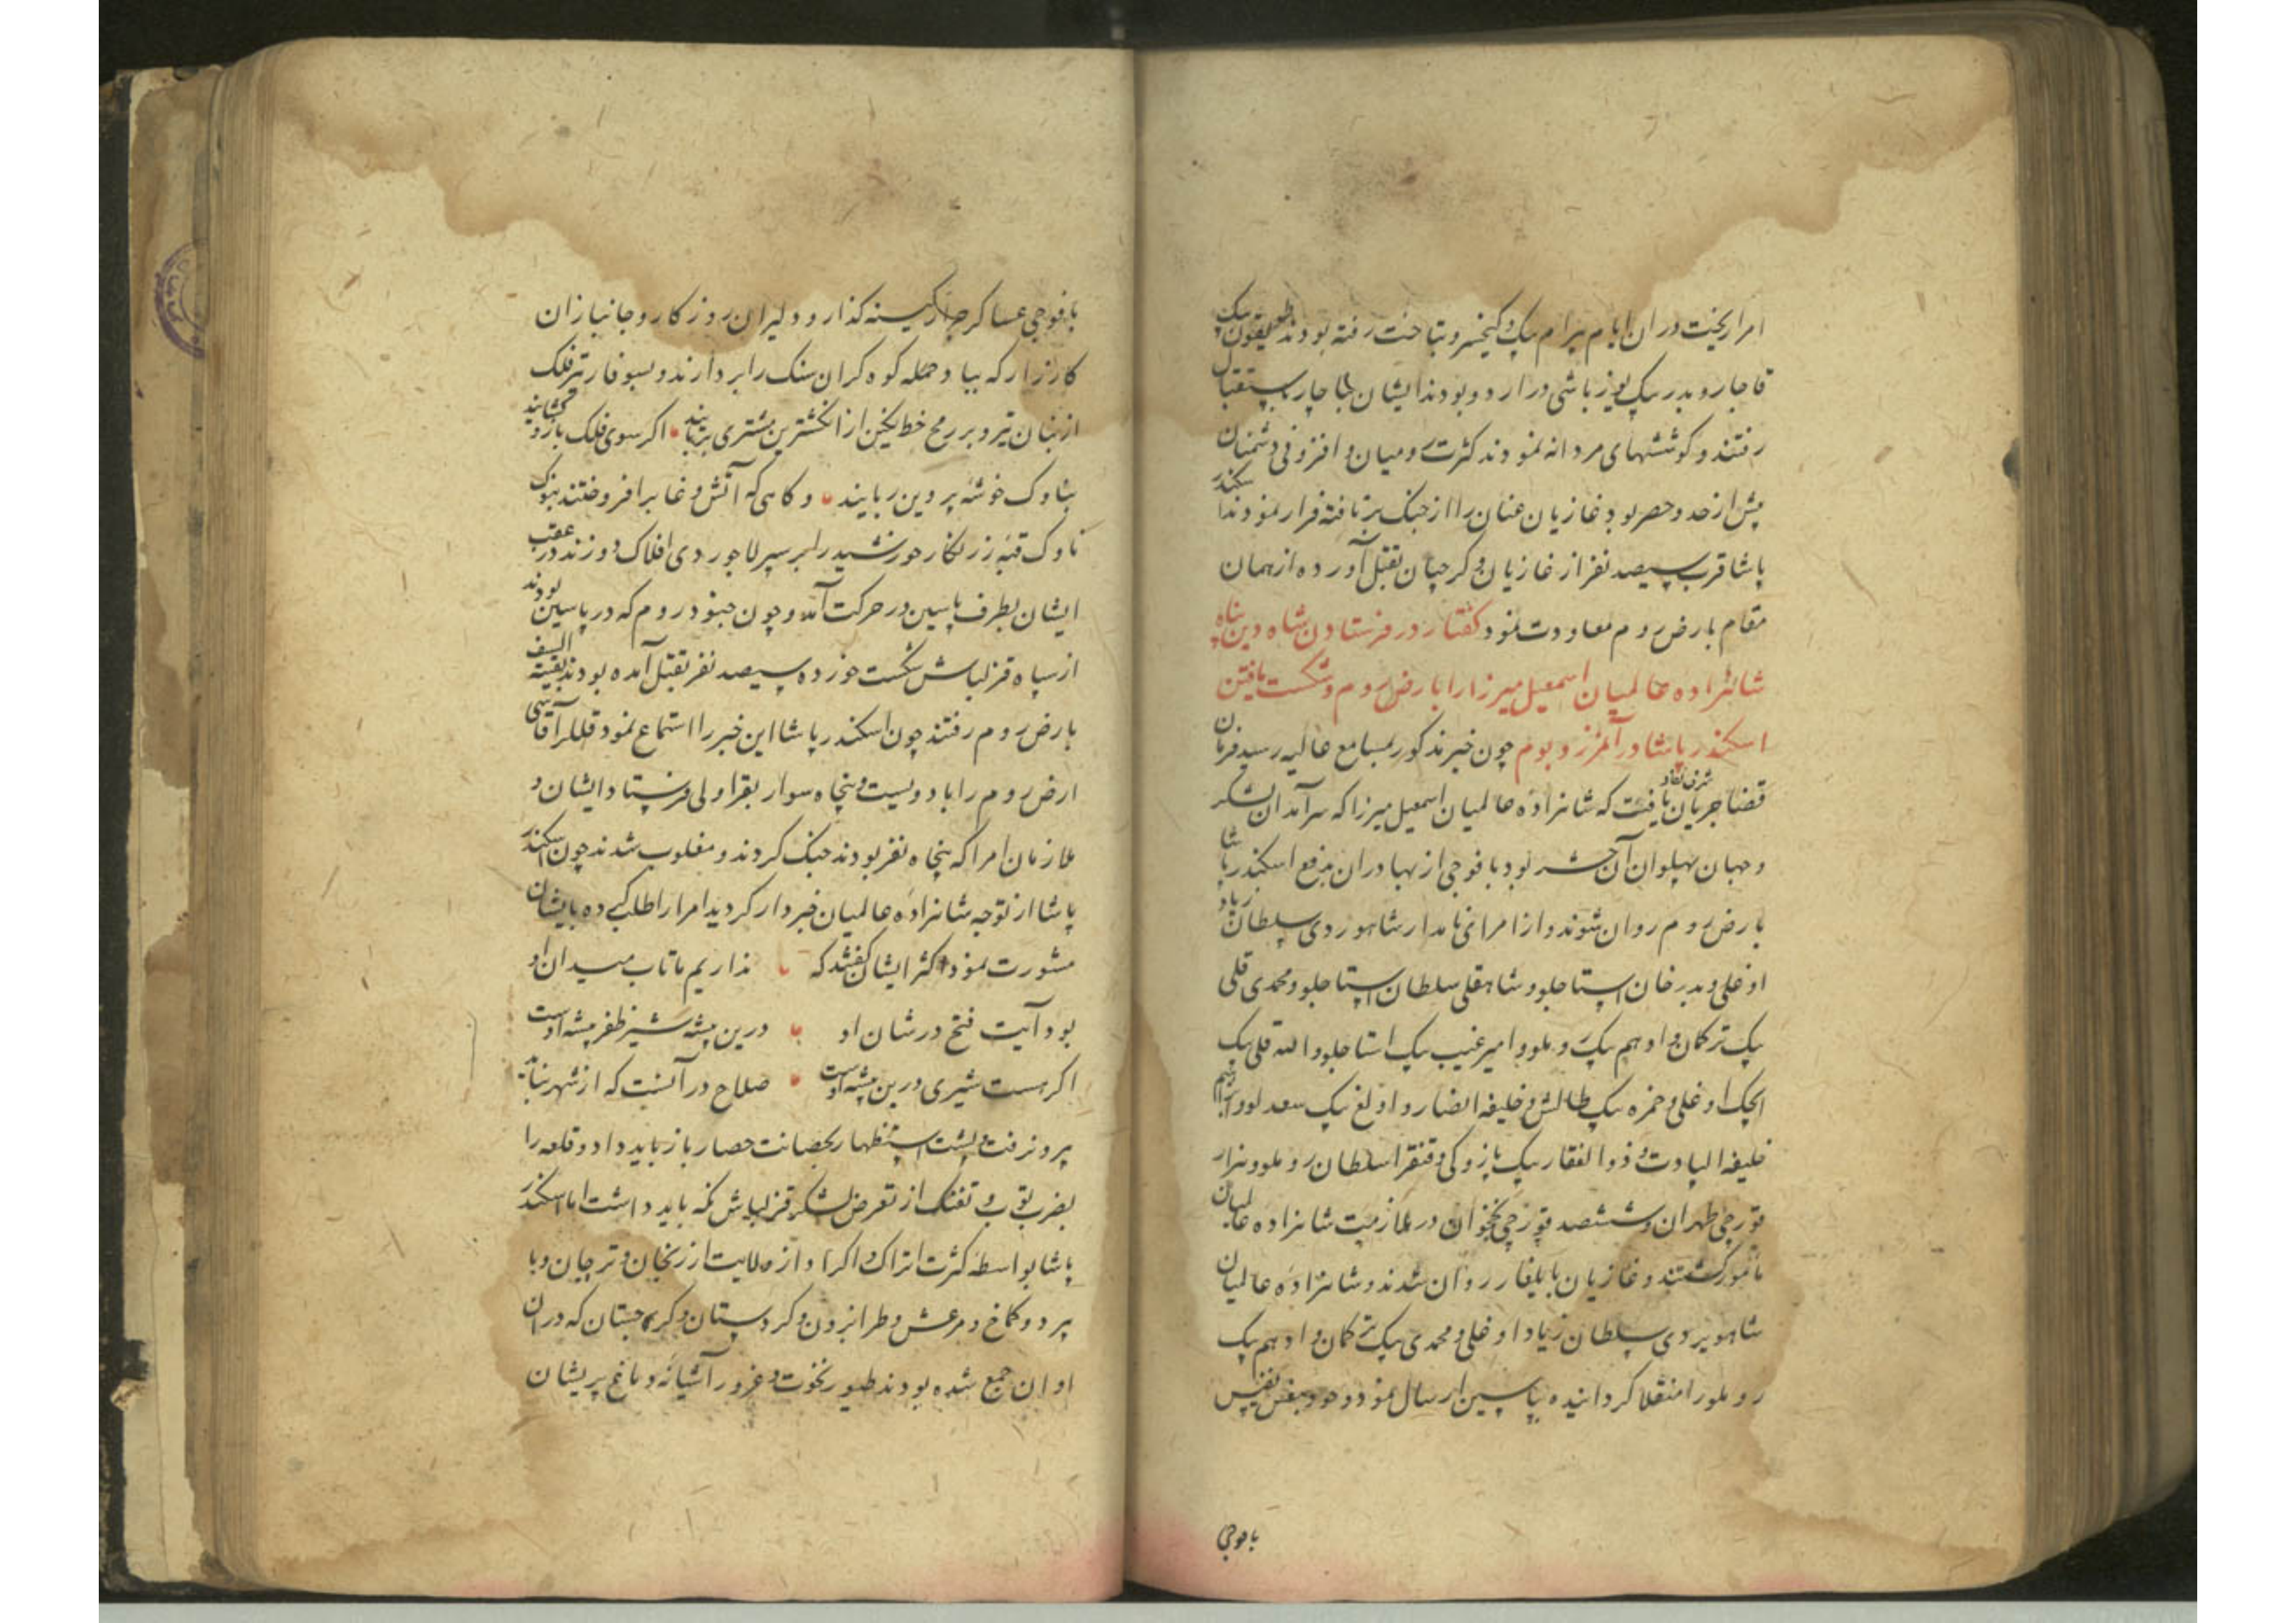 امرا ریخت در ان ایام بیرام بیک و کیخسرو بتاخت رفته بودند طویقون بیک
قاجار و بدر بیک یوزباشی در اردو بودند ایشان بالجا چار باستقبال
رفتند و کوششهای مردانه نمودند کثرت رومیان و افزونی دشمنان
پیش از حد و حصر بود غازیان عنان را از جنک برتافته فرار نمودند اسکندر
پاشا قرب سیصد نفر از غازیان و کرجیان بقتل آورده از همان
مقام بارض روم معاودت نمود کفتار در فرستادن شاه دین پناه
شاهزاده عالمیان اسمعیل میرزا را بارض روم و شکست یافتن
اسکندر پاشا در آن مرز و بوم چون خبر مذکور بمسامع عالیه رسید فرمان
قضا جریان شرف نفاد یافت که شاهزاده عالمیان اسمعیل میرزا که سرآمد ان لشکر
و جهان پهلوان آن حشر بود با فوجی از بهادران بدفع اسکندر پاشا
بارض روم روان شوند و از امرای نامدار شاهوردی سلطان زیاد
اوغلی و بدر خان استاجلو و شاهقلی سلطان استاجلو و محمدی قلی
بیک ترکمان و ادهم بیک روملو و امیر غیب بیک استاجلو و الله قلی بیک
ایجک اوغلی و حمزه بیک طالش و خلیفه انصار و اولغ بیک سعدلو و ابراهیم
خلیفه الپاوت و ذوالفقار بیک پازوکی و قنقرا سلطان روملو و هزار
قورچی طهران و ششصد قورچی نخجوان در ملازمت شاهزاده عالمیان
مامور کشتند و غازیان بایلغار روان شدند و شاهزاده عالمیان
شاهویردی سلطان زیاد اوغلی و محمدی بیک ترکمان و ادهم بیک
روملو را منقلا کردانیده بپاسین ارسال نمود و خود بنفس نفیس
بافوجی
بافوجی عساکر جرار کینه کذار و دلیران روزکار و جانبازان
کارزار که بباد حمله کوه کران سنک را بردارند و بسوفار تیر فلک
از بنان تیر و بر رمح خط نکین از انکشترین مشتری بربایند اکر سوی فلک بازو کشایند
بناوک خوشه پروین ربایند و کاهی که آتش وغا برافروختند بنوک
ناوک قبه زرنکار خورشید را بر سپر لاجوردی افلاک دوزند در عقب
ایشان بطرف پاسین در حرکت آمد و چون جنود روم که در پاسین بودند
از سپاه قزلباش شکست خورده سیصد نفر بقتل آمده بودند بقیته السیف
بارض روم رفتند چون اسکندر پاشا این خبر را استماع نمود قللر آقاسی
ارض روم را با دویست و پنجاه سوار بقراولی فرستاد ایشان و
ملازمان امرا که پنجاه نفر بودند جنک کردند و مغلوب شدند چون اسکندر
پاشا از توجه شاهزاده عالمیان خبردار کردید امرا را طلبیده بایشان
مشورت نمود اکثر ایشان کفتند که نداریم ما تاب میدان او
بود آیت فتح در شان او درین بیشه شیر ظفر پیشه اوست
اکر هست شیری درین بیشه اوست صلاح در آنست که از شهر نباید
بیرون رفت و پشت استظهار بحصانت حصار باز باید داد و قلعه را
بضرب توپ و تفنک از تعرض لشکر قزلباش نکه باید داشت اما اسکندر
پاشا بواسطه کثرت اتراک و اکراد از ولایت ارزنجان و ترجان و با
یبرد و کماخ و مرعش و طرابزون و کردستان و کرجستان که در ان
اوان جمع شده بودند طیور نخوت و غرور آشیانه دماغ پریشان